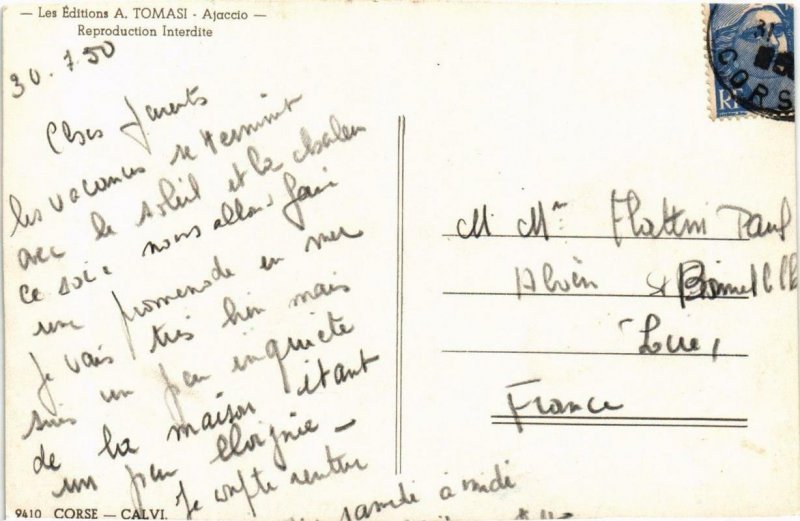 — Les Éditions A. TOMASI - Ajaccio —
Reproduction Interdite
30.7.50
Chers parents
les vacances se terminent
avec le soleil et la chaleur
ce soir nous allons faire
une promenade en mer
Je vais très bien mais
suis un peu inquiète
de la maison étant
un peu éloignée —
Je compte rentrer
samedi à midi
9410 CORSE — CALVI.
31
CORS
RF
M Mme Paul
France